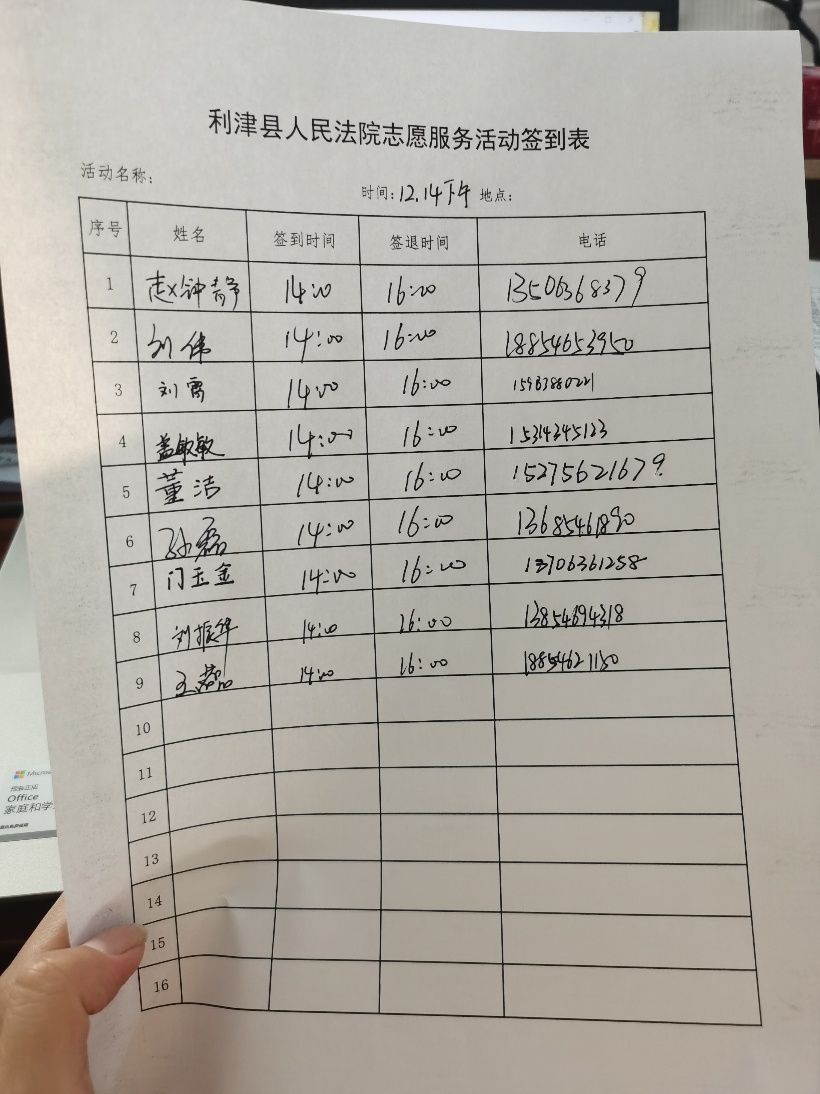 利津县人民法院志愿服务活动签到表
活动名称:
时间:12.14下午 地点:
序号 姓名 签到时间 签退时间 电话
1 赵钟静 14:00 16:00 13506368379
2 刘伟 14:00 16:00 18854653950
3 刘雷 14:00 16:00
4 盖敏敏 14:00 16:00 15314345123
5 董洁 14:00 16:00 15275621679
6 孙磊 14:00 16:00 13685461890
7 门玉金 14:00 16:00 13706361258
8 刘振华 14:00 16:00 13854694318
9 王磊 14:00 16:00 18854621150
10
11
12
13
14
15
16
Office
家庭和学